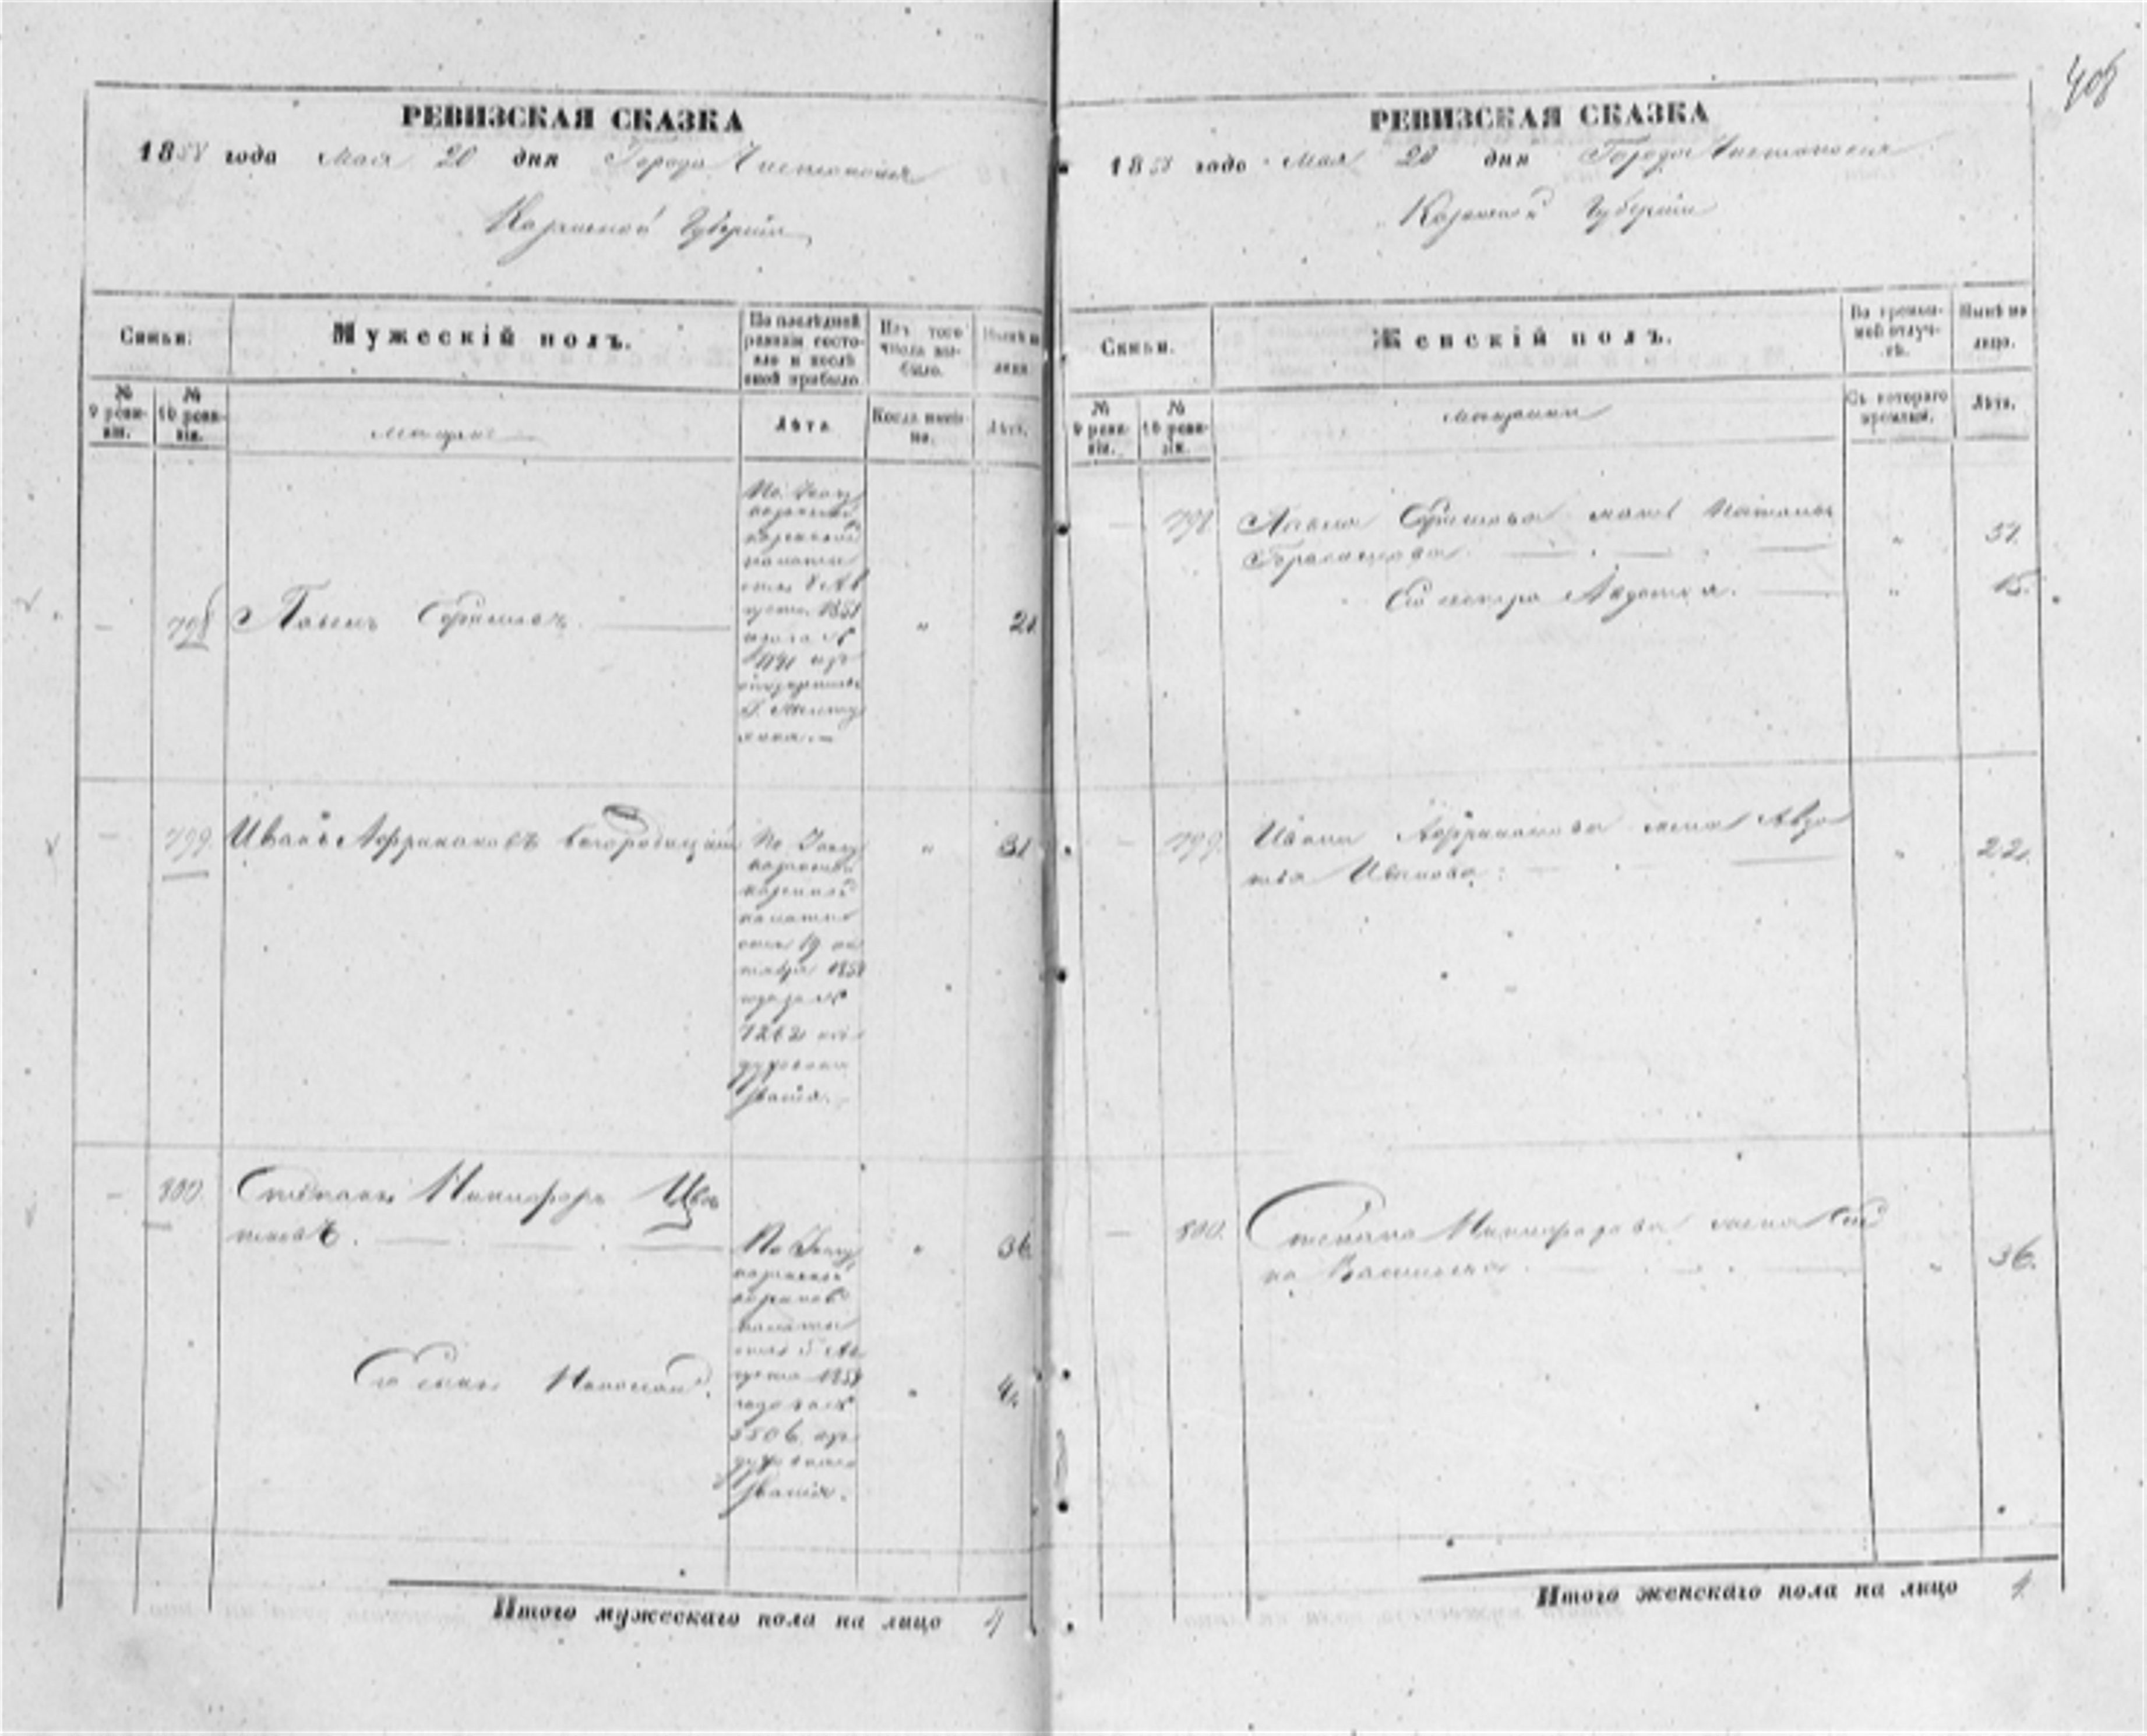 408
РЕВИЗСКАЯ СКАЗКА
1858 года Мая 20 дня Города Чистополя
Казанской Губерніи
Семьи.
Мужескій полъ.
По послѣдней ревизіи состояло и послѣ оной прибыло
Изъ того числа выбыло.
Нынѣ на лицо
№ 9 ревизіи.
№ 10 ревизіи.
мещане
Лѣта
Когда именно.
Лѣта.
798
Павелъ
По Указу
Казанской
казенной
палаты
отъ 8 Ав
густа 1858
года за №
изъ
21
799
Иванъ Африкановъ Богородицкій
По Указу
казанской
казенной
палаты
отъ 19 ок
тября 1858
года за №
7262 из
духовнаго
званія.
31
800.
Степанъ Никифоръ Цвѣ
тковъ.
По Указу
казанской
казенной
палаты
отъ 5 Ав
густа 1858
года за №
5506 изъ
духовнаго
званія.
36
Его сынъ Николай.
4.
Итого мужескаго пола на лицо 4
РЕВИЗСКАЯ СКАЗКА
1858 года Мая 20 дня Города Чистополя
Казанской Губерніи
Семьи.
Женскій полъ.
Во временной отлучкѣ.
Нынѣ на лицо.
№ 9 ревизіи.
№ 10 ревизіи.
мещанки
Съ котораго времени.
Лѣта.
798.
Павла мать Наталья
Герасимова
51.
Его сестра Авдотья.
15.
799.
Ивана Африканова жена Авдо
тья Иванова.
22.
800.
Степана Никифорова жена
Васильева
36.
Итого женскаго пола на лицо 4